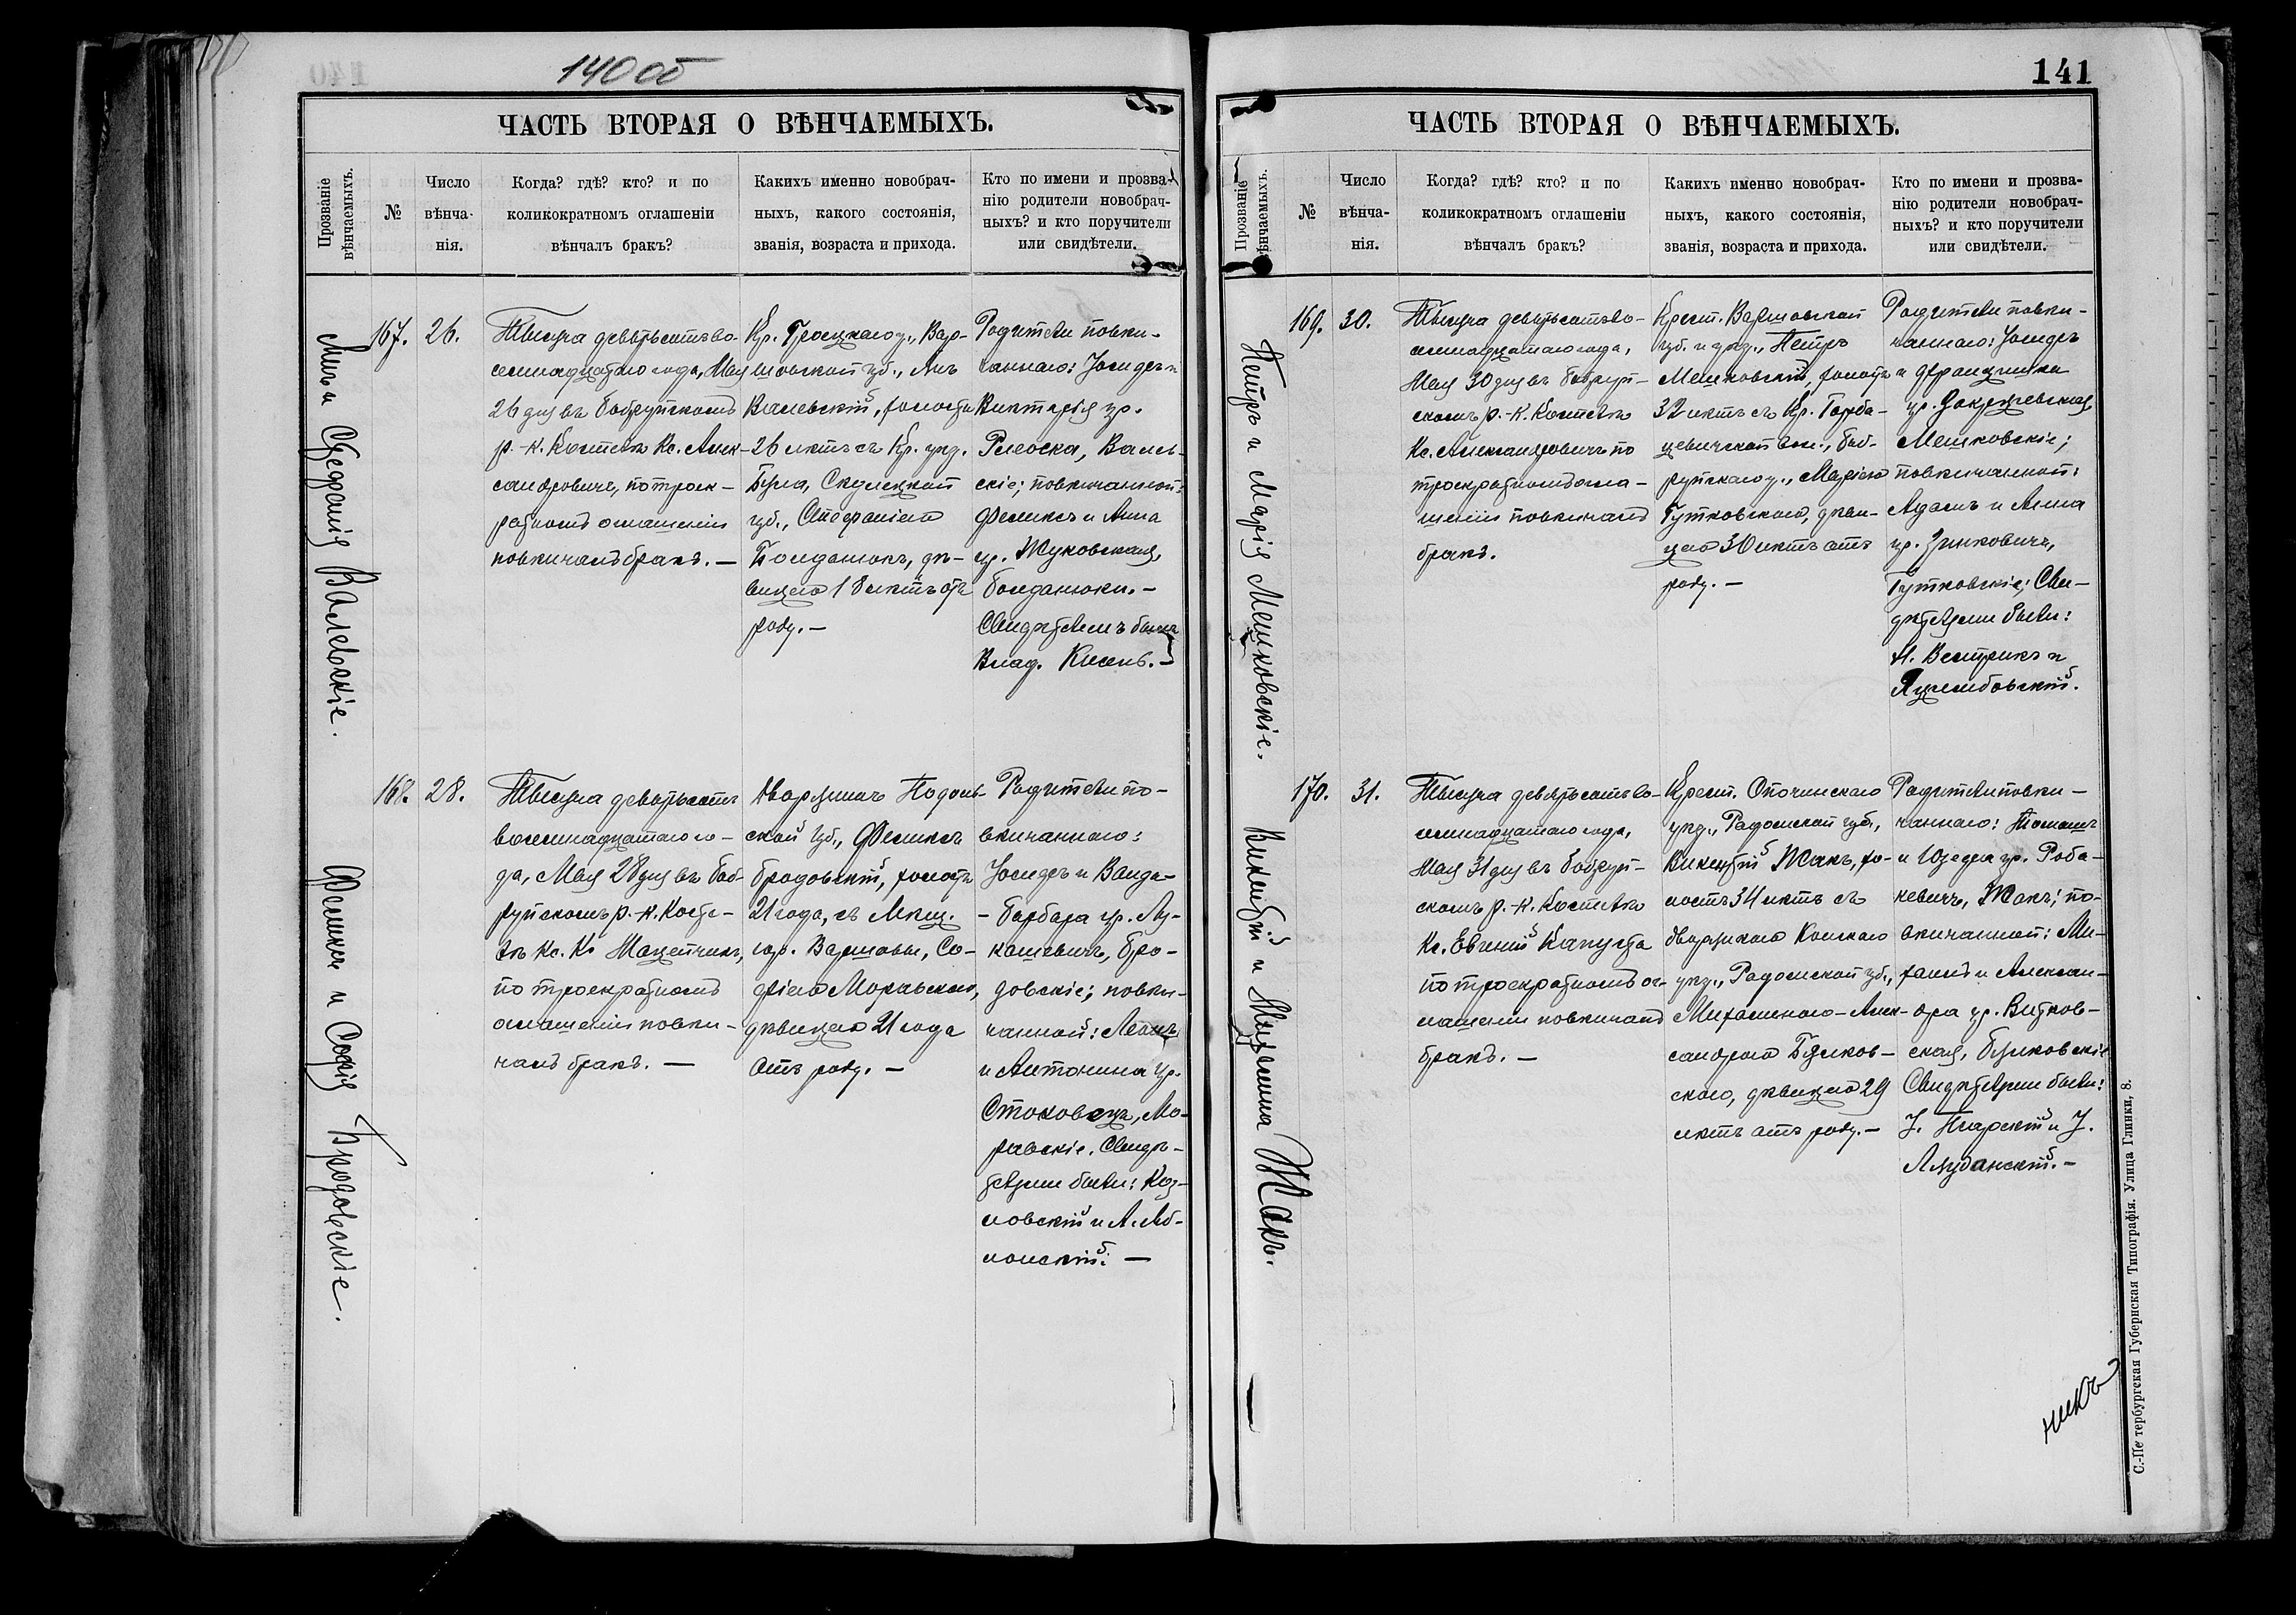 140 об
ЧАСТЬ ВТОРАЯ О ВѢНЧАЕМЫХЪ.
Прозваніе вѣнчаемыхъ.
№
Число вѣнча- нія.
Когда? гдѣ? кто? и по
коликократномъ оглашеніи
вѣнчалъ бракъ?
Какихъ именно новобрач-
ныхъ, какого состоянія,
званія, возраста и прихода.
Кто по имени и прозва-
нію родители новобрач-
ныхъ? и кто поручители
или свидѣтели.
и Стефанія Валевскіе.
167. 26.
Тысяча девятьсотъ во-
семнадцатаго года, Мая
26 дня въ Бобруйскомъ
р.-к. Костелѣ Кс. Алек-
сандровичъ, по троек-
ратномъ оглашеніи
повѣнчалъ бракъ. —
Кр. Гроецкаго у., Вар-
шавской губ.,
Валевскій, холостъ
26 лѣтъ съ Кр. уѣз.
губ., Стефаніею
Богданюкъ, дѣ-
вицею 18 лѣтъ отъ
роду. —
Родители повѣн-
чаннаго: Іосифъ и
Викторія ур.
Валев-
скіе; повѣнчанной:
Феликсъ и Анна
ур. Жуковская,
Богданюки. —
Свидѣтелемъ былъ
Влад. Кисель. —
Феликсъ и Софія Бродовскіе.
168. 28.
Тысяча девятьсотъ
восемнадцатаго го-
да, Мая 28 дня въ Боб-
руйскомъ р.-к. Косте-
лѣ Кс. К.
по троекратномъ
оглашеніи повѣн-
чалъ бракъ. —
Дворянинъ Подоль-
ской губ., Феликсъ
Бродовскій, холостъ
21 года, съ Мѣщ.
гор. Варшавы, Со-
фіею Моравскою,
дѣвицею 21 года
отъ роду. —
Родители по-
вѣнчаннаго:
Іосифъ и Ванда-
- Барбара ур. Лу-
кашевичъ, Бро-
довскіе; повѣн-
чанной: Леонъ
и Антонина ур.
Мо-
равскіе. Свидѣ-
телями были: Коз-
ловскій и А. Яб-
лонскій. —
141
ЧАСТЬ ВТОРАЯ О ВѢНЧАЕМЫХЪ.
Прозваніе вѣнчаемыхъ.
№
Число вѣнча- нія.
Когда? гдѣ? кто? и по
коликократномъ оглашеніи
вѣнчалъ бракъ?
Какихъ именно новобрач-
ныхъ, какого состоянія,
званія, возраста и прихода.
Кто по имени и прозва-
нію родители новобрач-
ныхъ? и кто поручители
или свидѣтели.
Петръ и Марія Мешковскіе.
169. 30.
Тысяча девятьсотъ во-
семнадцатаго года,
Мая 30 дня въ Бобруй-
скомъ р.-к. Костелѣ
Кс. Александровичъ по
троекратномъ огла-
шеніи повѣнчалъ
бракъ.
Крест. Варшавской
губ. и уѣз., Петръ
Мешковскій, холостъ
32 лѣтъ съ Кр. Горба-
цевичской вол., Боб-
руйскаго у., Маріею
Гутковскою, дѣви-
цею 30 лѣтъ отъ
роду. —
Родители повѣн-
чаннаго: Іосифъ
и Францишка
ур. Закржевская,
Мешковскіе;
повѣнчанной:
Адамъ и Анна
ур. Зинковичъ,
Гутковскіе; Сви-
дѣтелями были:
и
Викентій и Жакъ.
170. 31.
Тысяча девятьсотъ во-
семнадцатаго года,
Мая 31 дня въ Бобруй-
скомъ р.-к. Костелѣ
Кс. Евгеній Капуста
по троекратномъ ог-
лашеніи повѣнчалъ
бракъ. —
Крест. Опочинскаго
уѣз., Радомской губ.,
Викентій Жакъ, хо-
лостъ 34 лѣтъ съ
дворянкою Конскаго
уѣз., Радомской губ.,
Михалиною-Алек-
сандрою
скою, дѣвицею 29
лѣтъ отъ роду. —
Родители повѣн-
чаннаго: Томашъ
и Юзефа ур. Роба-
кевичъ, Жакъ; по-
вѣнчанной: Ми-
хаилъ и Алексан-
дра ур. Витков-
ская,
Свидѣтелями были:
І. и І.
С.-Петербургская Губернская Типографія. Улица Глинки, 8.
никъ